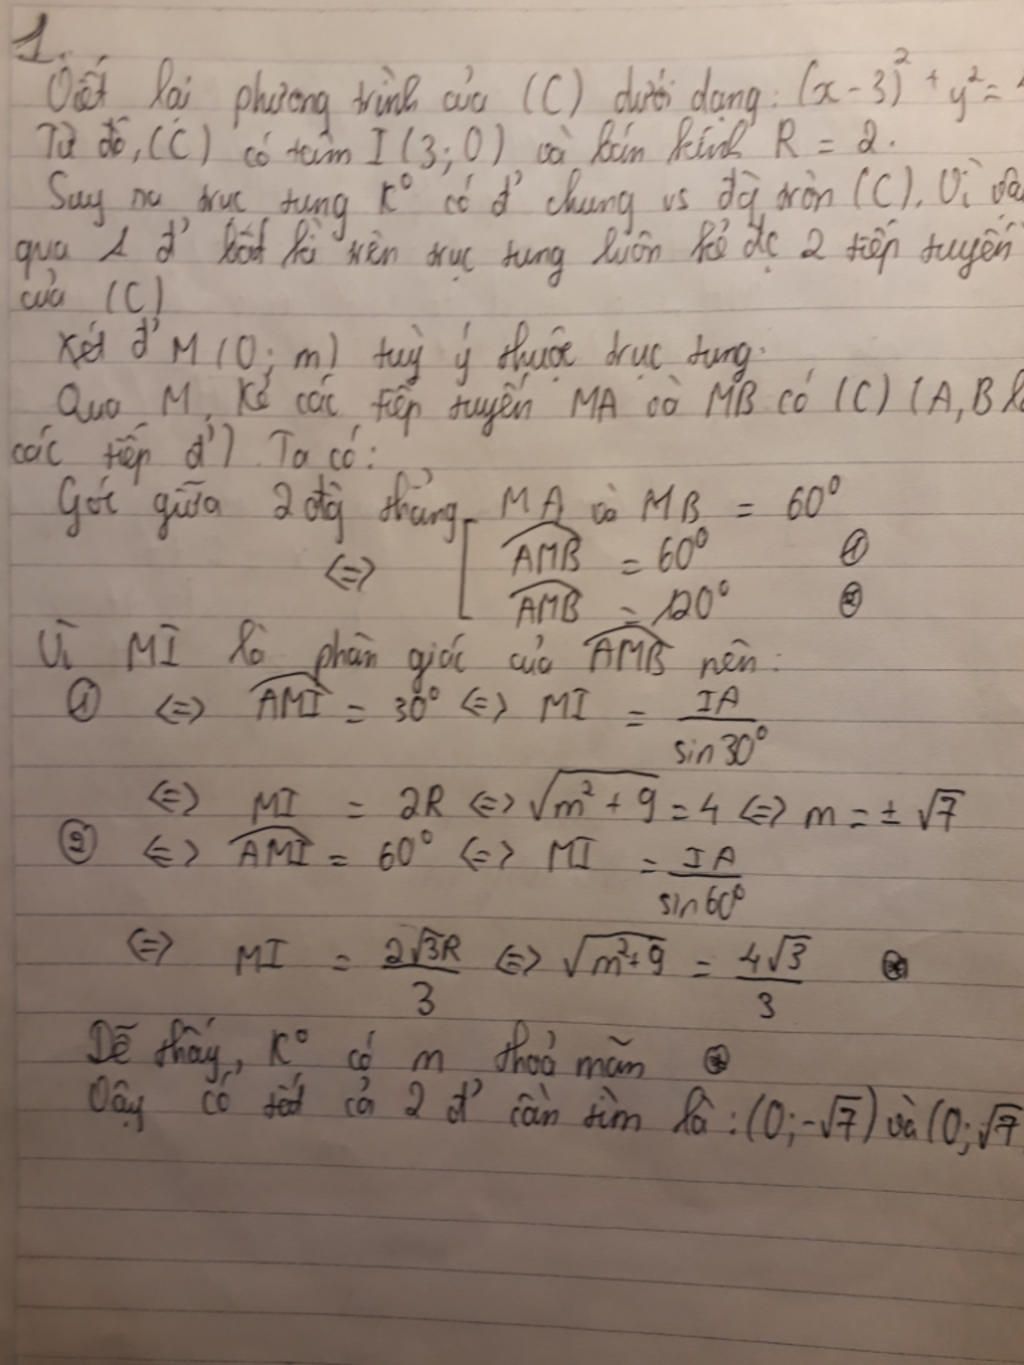 1.
Viết lại phương trình của (C) dưới dạng: (x - 3)² + y² =
Từ đó, (C) có tâm I (3; 0) và bán kính R = 2.
Suy ra trục tung K° có đ' chung vs đg tròn (C). Vì
qua 1 đ' bất kì trên trục tung luôn kẻ đc 2 tiếp tuyến
của (C)
Xét đ' M (0; m) tuỳ ý thuộc trục tung.
Qua M, kẻ các tiếp tuyến MA và MB có (C) (A, B
các tiếp đ'). Ta có:
Góc giữa 2 đg thẳng MA và MB = 60°
⇔ [ AMB = 60° ①
AMB = 120° ②
Vì MI là phân giác của AMB nên:
① ⇔ AMI = 30° ⇔ MI = IA / sin 30°
⇔ MI = 2R ⇔ √(m² + 9) = 4 ⇔ m = ± √7
② ⇔ AMI = 60° ⇔ MI = IA / sin 60°
⇔ MI = 2√3R / 3 ⇔ √(m² + 9) = 4√3 / 3 ⊛
Dễ thấy, K° có m thoả mãn ⊛
Vậy có tất cả 2 đ' cần tìm là: (0; -√7) và (0; √7